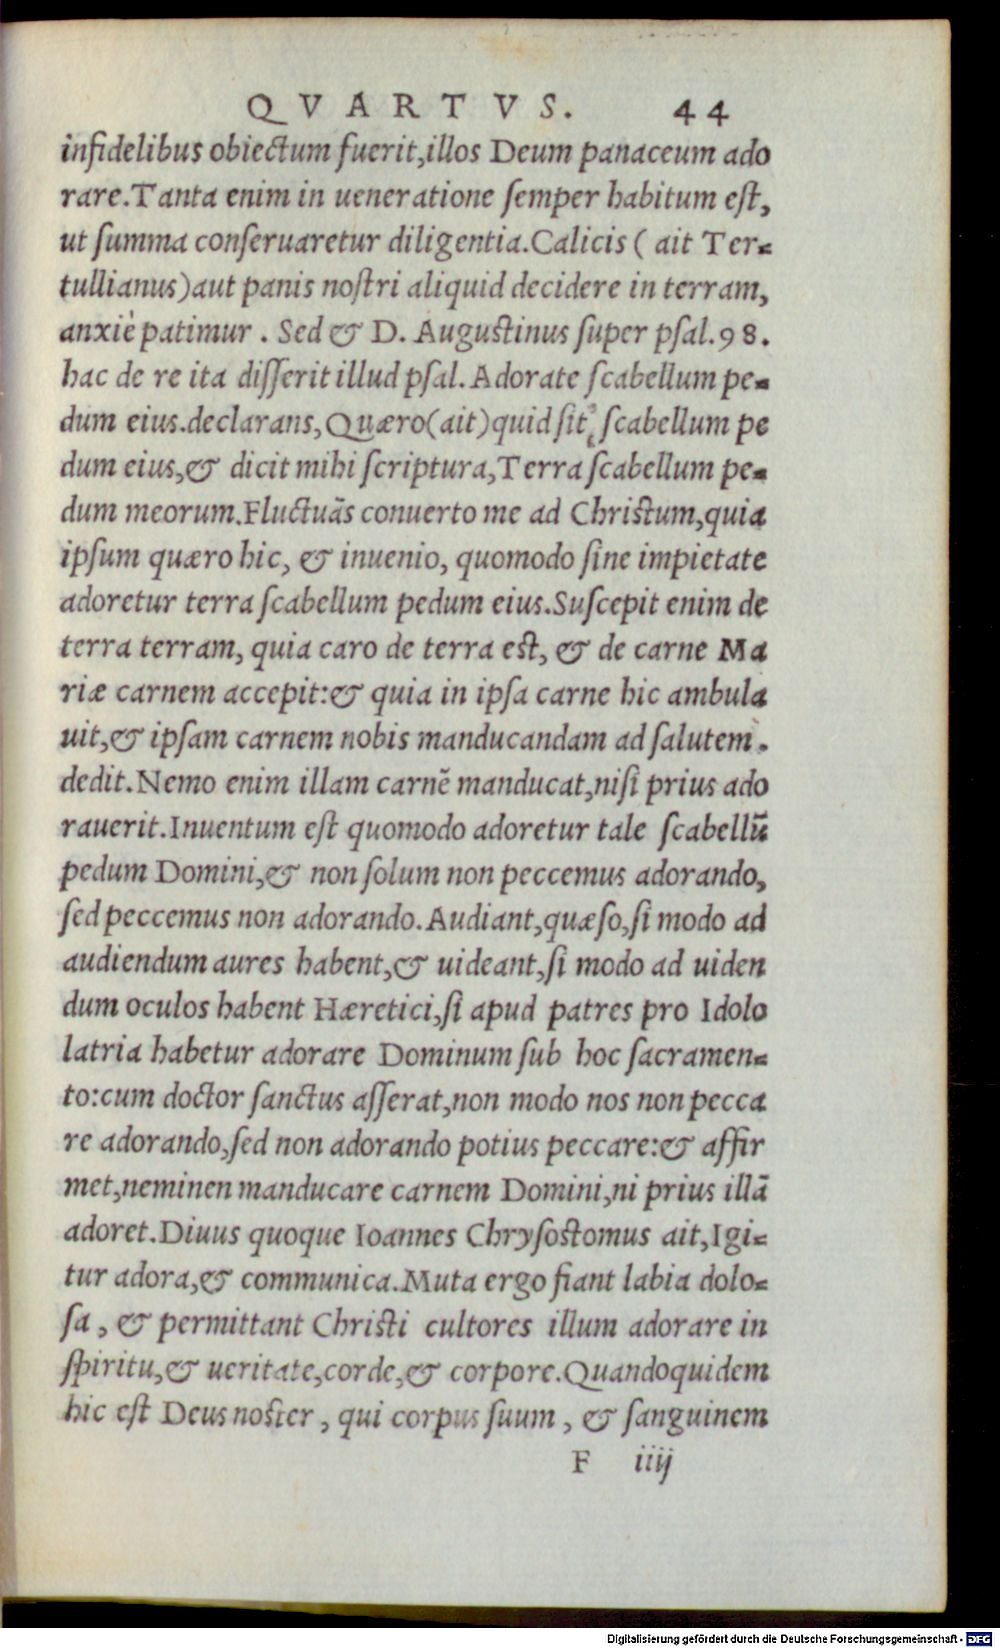 QVARTVS. 44
infidelibus obiectum fuerit,illos Deum panaceum ado
rare.Tanta enim in ueneratione semper habitum est,
ut summa conseruaretur diligentia.Calicis ( ait Ter=
tullianus)aut panis nostri aliquid decidere in terram,
anxiè patimur . Sed & D. Augustinus super psal.98.
hac de re ita disserit illud psal. Adorate scabellum pe=
dum eius.declarans, Quæro(ait)quid sit? scabellum pe
dum eius,& dicit mihi scriptura,Terra scabellum pe=
dum meorum.Fluctuãs conuerto me ad Christum,quia
ipsum quæro hic, & inuenio, quomodo sine impietate
adoretur terra scabellum pedum eius.Suscepit enim de
terra terram, quia caro de terra est, & de carne Ma
riæ carnem accepit:& quia in ipsa carne hic ambula
uit,& ipsam carnem nobis manducandam ad salutem.
dedit.Nemo enim illam carnẽ manducat,nisi prius ado
rauerit.Inuentum est quomodo adoretur tale scabellũ
pedum Domini,& non solum non peccemus adorando,
sed peccemus non adorando.Audiant,quæso,si modo ad
audiendum aures habent,& uideant,si modo ad uiden
dum oculos habent Hæretici,si apud patres pro Idolo
latria habetur adorare Dominum sub hoc sacramen=
to:cum doctor sanctus asserat,non modo nos non pecca
re adorando,sed non adorando potius peccare:& affir
met,neminen manducare carnem Domini,ni prius illã
adoret.Diuus quoque Ioannes Chrysostomus ait,Igi=
tur adora,& communica.Muta ergo fiant labia dolo=
sa , & permittant Christi cultores illum adorare in
spiritu,& ueritate,corde,& corpore.Quandoquidem
hic est Deus noster , qui corpus suum , & sanguinem
F iiij
Digitalisierung gefördert durch die Deutsche Forschungsgemeinschaft - DFG